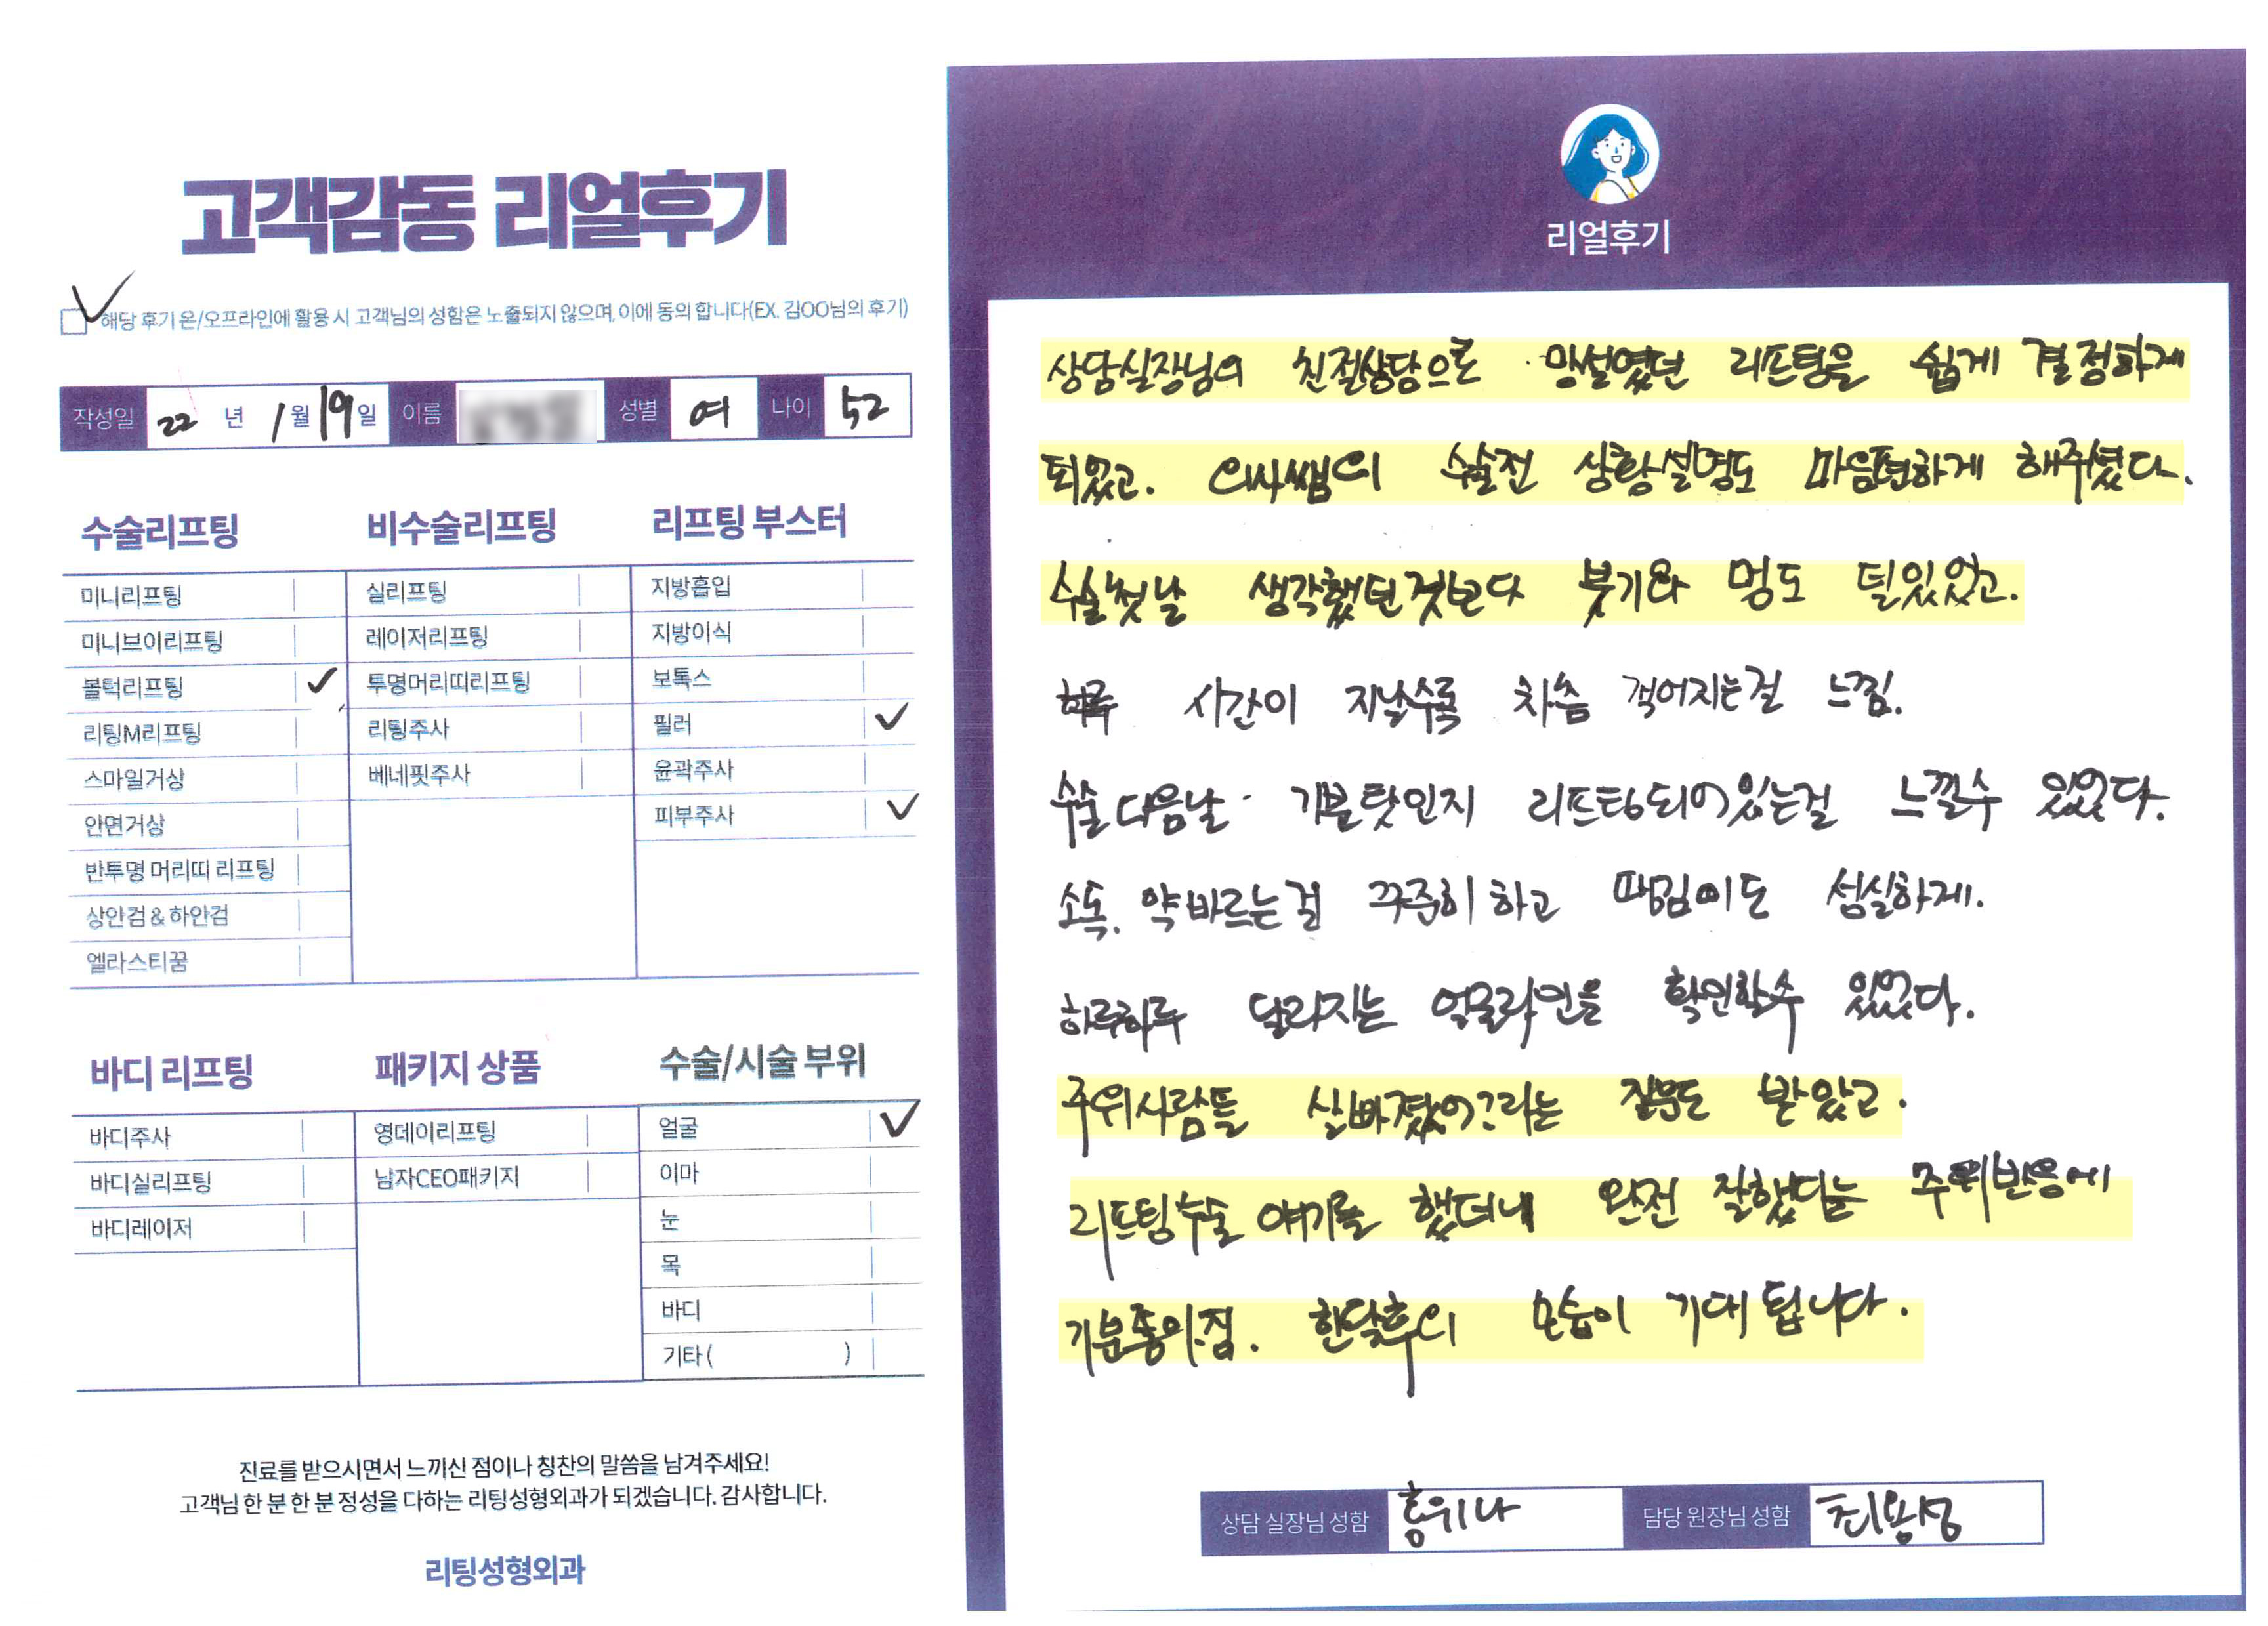 고객감동 리얼후기
해당 후기 온/오프라인에 활용 시 고객님의 성함은 노출되지 않으며, 이에 동의 합니다(EX. 김OO님의 후기)
작성일 22 년 1월 19일 이름 성별 여 나이 52
수술리프팅
미니리프팅
미니브이리프팅
볼턱리프팅
리팅M리프팅
스마일거상
안면거상
반투명 머리띠 리프팅
상안검 & 하안검
엘라스티꿈
비수술리프팅
실리프팅
레이저리프팅
투명머리띠리프팅
리팅주사
베네핏주사
리프팅 부스터
지방흡입
지방이식
보톡스
필러
윤곽주사
피부주사
바디 리프팅
바디주사
바디실리프팅
바디레이저
패키지 상품
영데이리프팅
남자CEO패키지
수술/시술 부위
얼굴
이마
눈
목
바디
기타 ( )
진료를 받으시면서 느끼신 점이나 칭찬의 말씀을 남겨주세요!
고객님 한 분 한 분 정성을 다하는 리팅성형외과가 되겠습니다. 감사합니다.
리팅성형외과
리얼후기
상담실장님의 친절상담으로 망설였던 리프팅을 쉽게 결정하게
되었고. 의사쌤의 수술전 상황설명도 마음편하게 해주셨다.
수술첫날 생각했던것보다 붓기와 멍도 덜있었고.
하루 시간이 지날수록 차츰 적어지는걸 느낌.
수술다음날 기분탓인지 리프팅되어있는걸 느낄수 있었다.
소독. 약바르는걸 꾸준히 하고 땅김이도 성실하게.
하루하루 달라지는 얼굴라인을 확인할수 있었다.
주위사람들 살빠졌어?라는 질문도 받았고.
리프팅수술 얘기를 했더니 완전 잘했다는 주위반응에
기분좋아짐. 한달후의 모습이 기대 됩니다.
상담 실장님 성함 홍위나 담당 원장님 성함 최용성